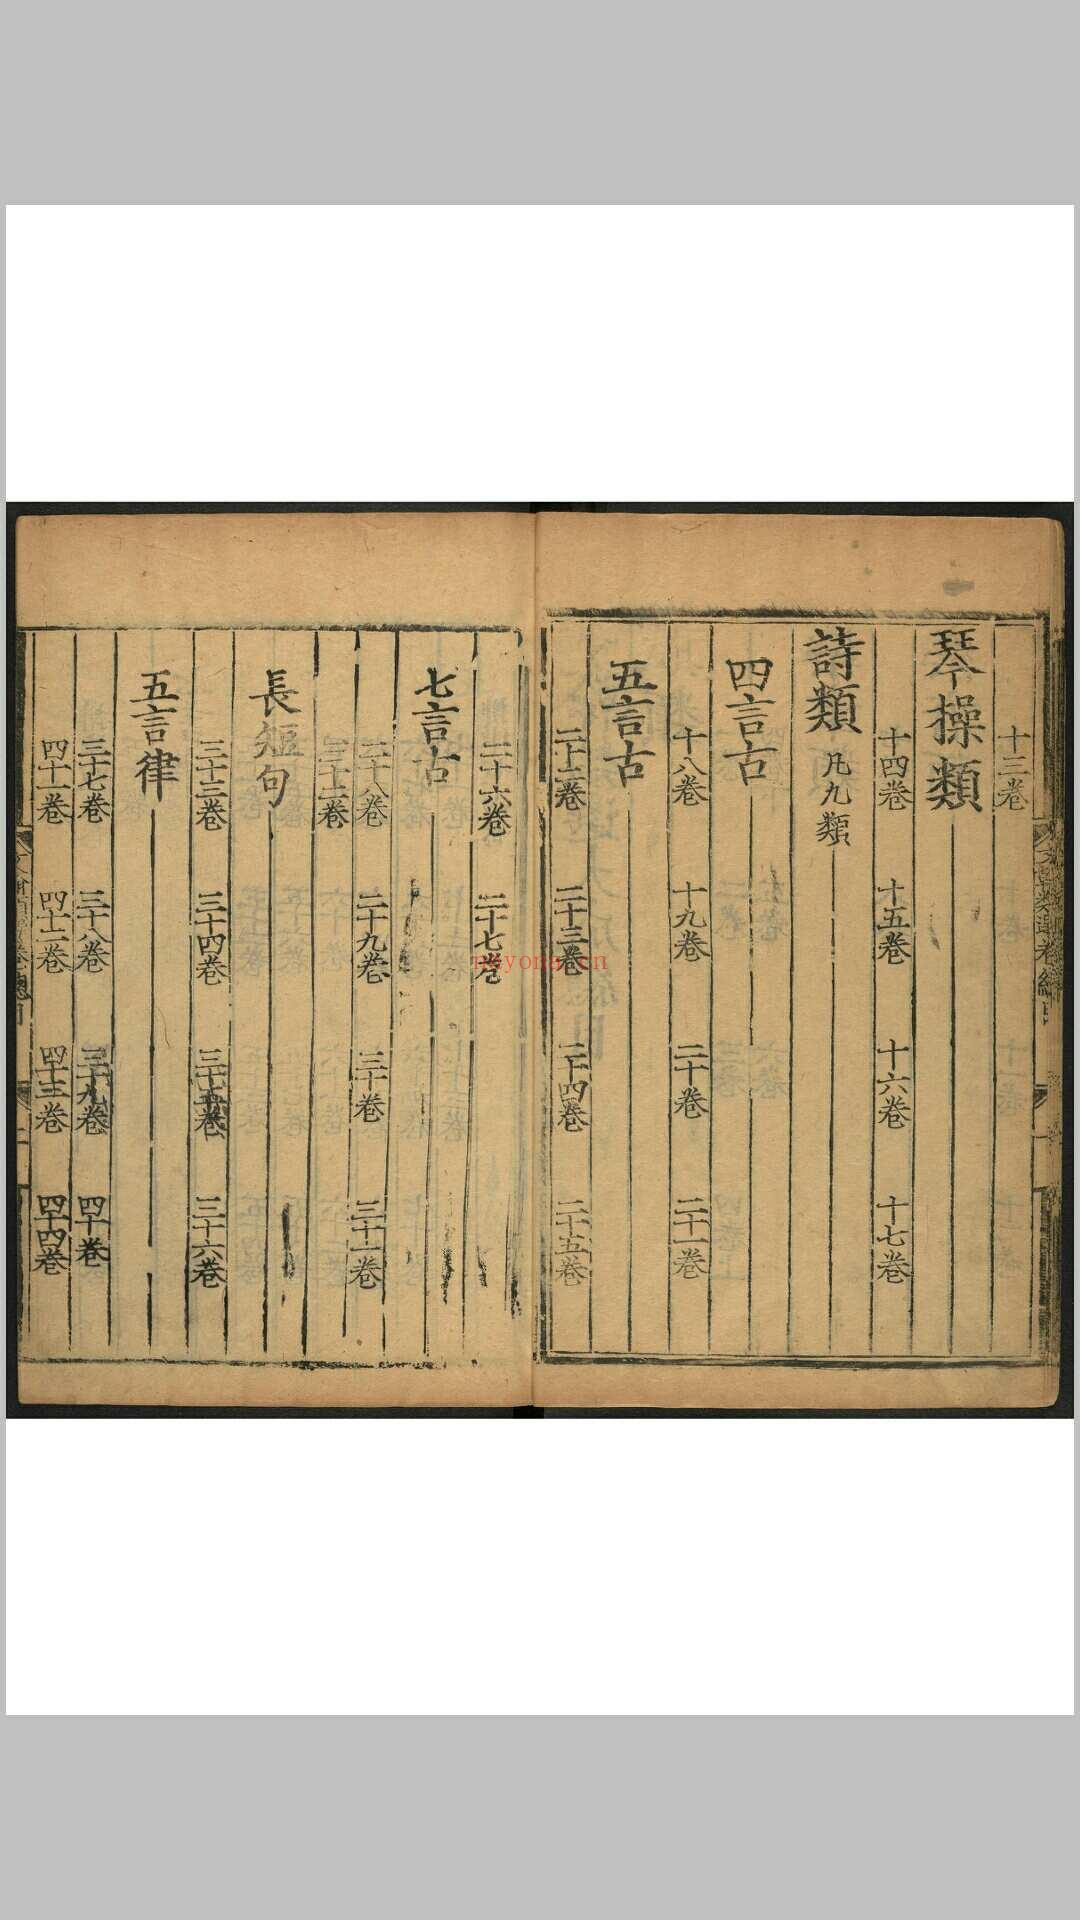 十三卷
琴操類
十四卷 十五卷 十六卷 十七卷
詩類 凡九類
四言古
十八卷 十九卷 二十卷 二十一卷
五言古
二十二卷 二十三卷 二十四卷 二十五卷
二十六卷 二十七卷
七言古
二十八卷 二十九卷 三十卷 三十一卷
三十二卷
長短句
三十三卷 三十四卷 三十五卷 三十六卷
五言律
三十七卷 三十八卷 三十九卷 四十卷
四十一卷 四十二卷 四十三卷 四十四卷
nayona.cn